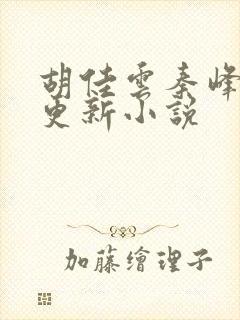 胡佳雲秦峰
更新小說
加藤繪理子